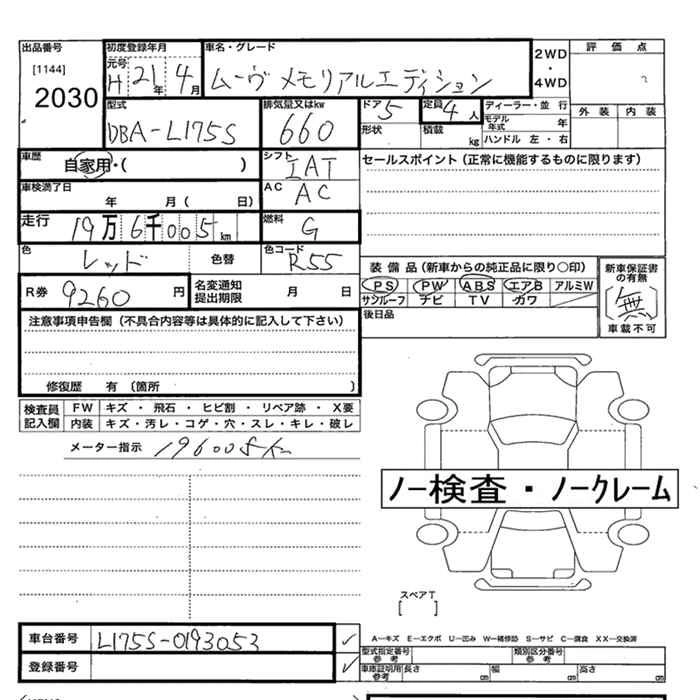 出品番号 初度登録年月 車名・グレード 2WD・4WD 評価点
[1144] 元号 H 21年 4月 ムーヴ メモリアルエディション
2030 外装 内装
型式 排気量又はkw ドア 5 定員 4人 ディーラー・並行
DBA-L175S 660 形状 積載 kg モデル年式 年
ハンドル 左・右
車歴 自家用・( ) シフト IAT セールスポイント(正常に機能するものに限ります)
車検満了日 年 月( 日) AC AC
走行 19万6千005km 燃料 G
色 レッド 色替 色コード R55
装備品(新車からの純正品に限り○印) 新車保証書の有無
R券 9260円 名変通知提出期限 月 日 PS PW ABS エアB アルミW 無
サンルーフ ナビ TV カワ 車載不可
注意事項申告欄(不具合内容等は具体的に記入して下さい) 後日品
修復歴 有(箇所 )
検査員記入欄 FW キズ・飛石・ヒビ割・リペア跡・X要
内装 キズ・汚レ・コゲ・穴・スレ・キレ・破レ
メーター指示 196005km
ノー検査・ノークレーム
スペアT
[ ]
車台番号 L175S-0193053 ✓ A—キズ E—エクボ U—凹み W—補修跡 S—サビ C—腐食 XX—交換済
型式指定番号参考 類別区分番号参考
登録番号 ✓ 車庫証明用参考 長さ cm 幅 cm 高さ cm